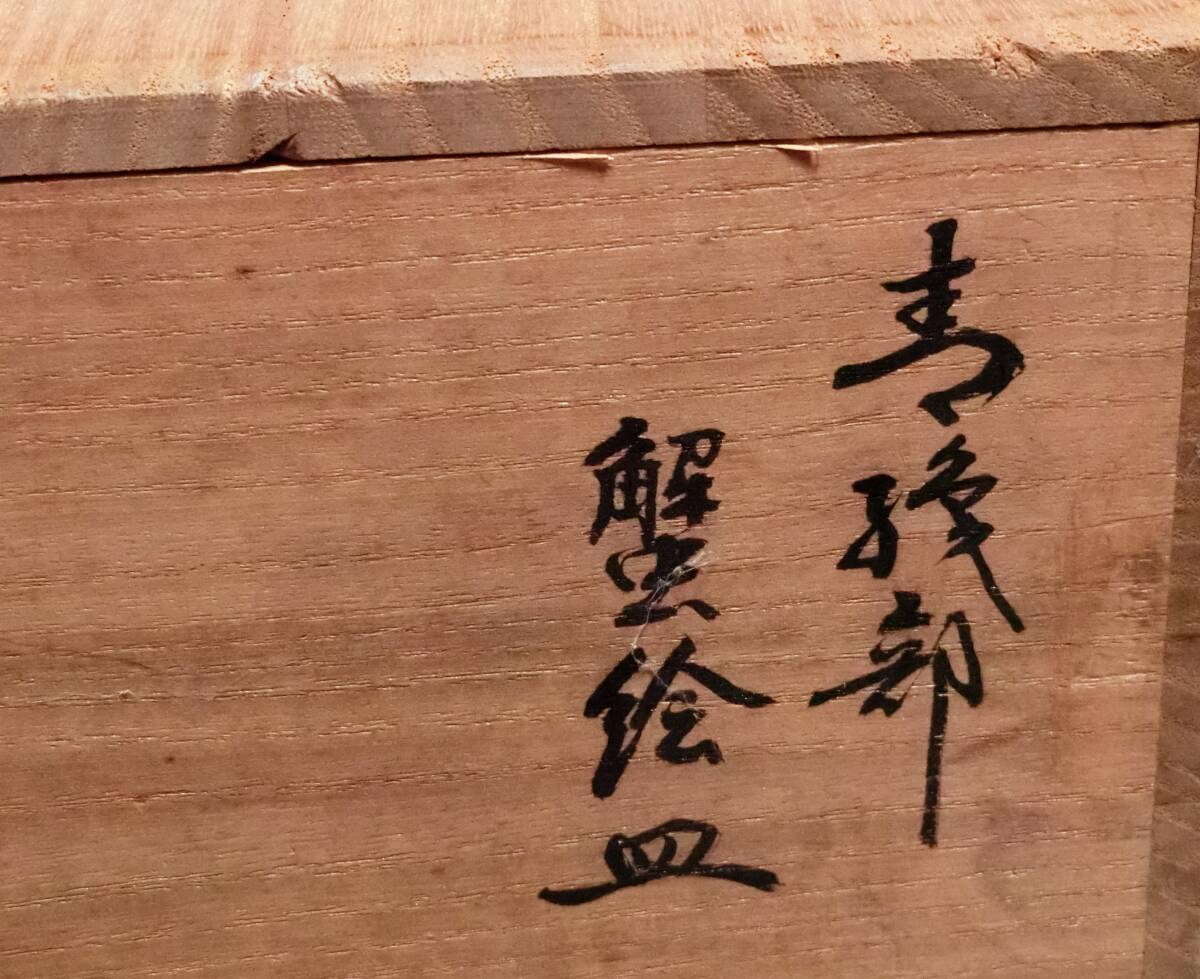 青織部
蟹絵皿